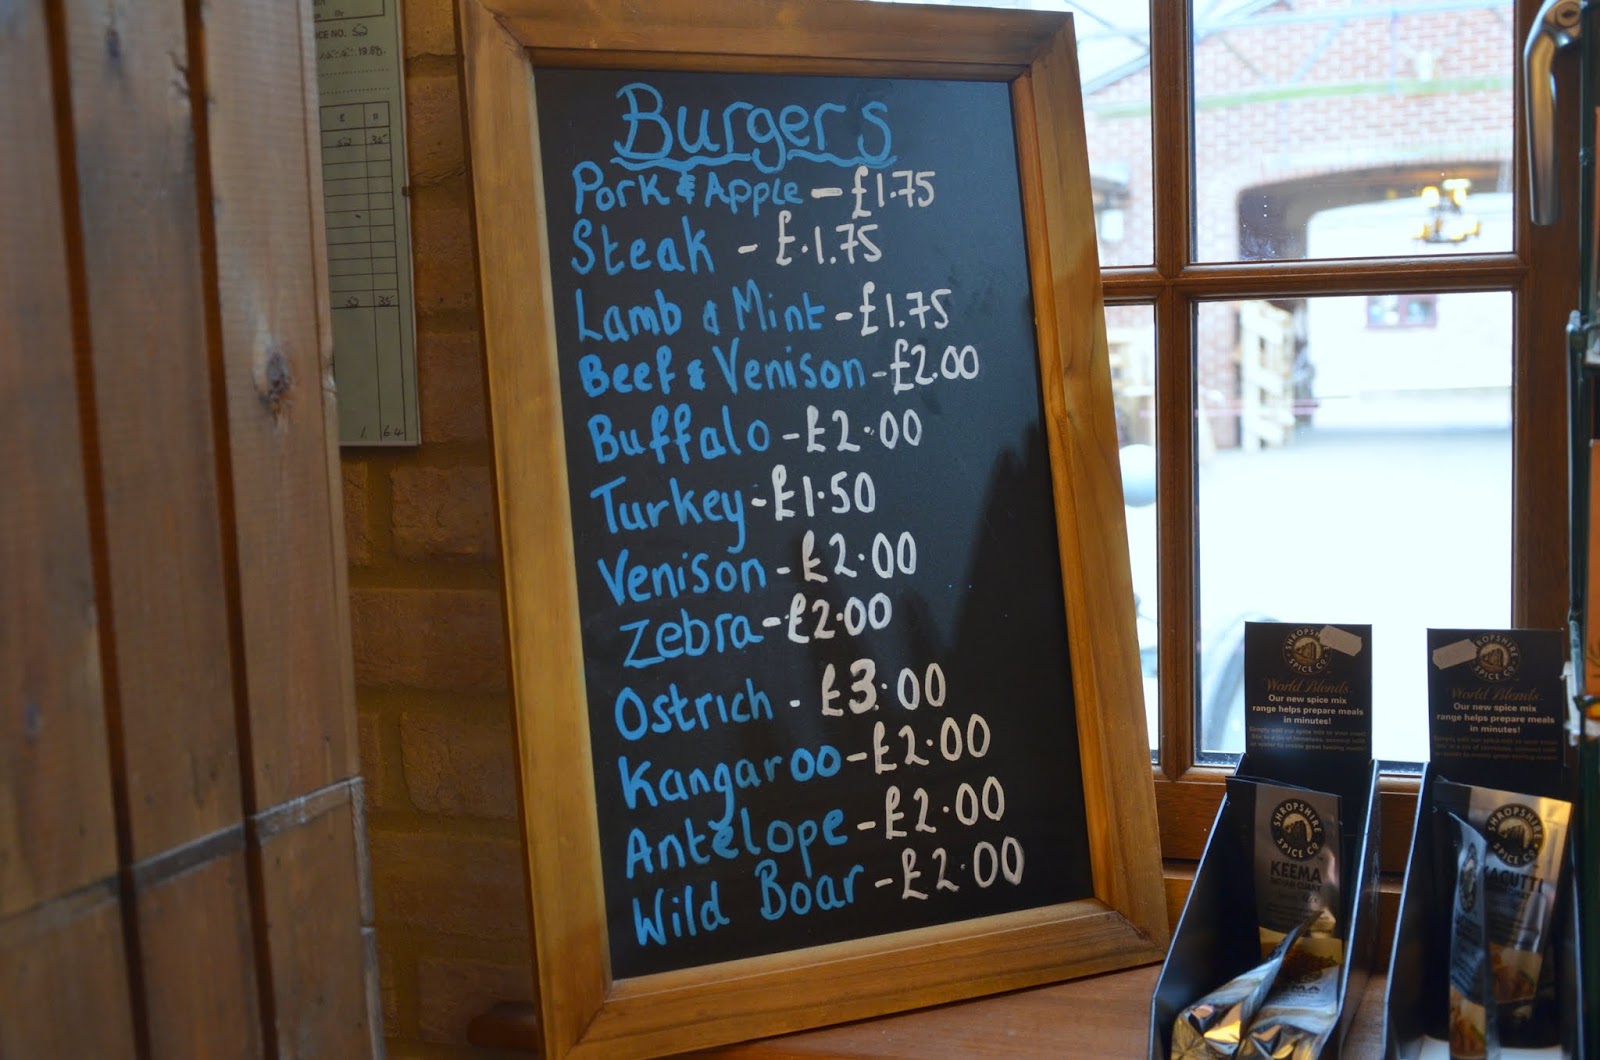 Burgers
Pork & Apple - £1.75
Steak - £.1.75
Lamb & Mint - £1.75
Beef & Venison - £2.00
Buffalo - £2.00
Turkey - £1.50
Venison - £2.00
Zebra - £2.00
Ostrich - £3.00
Kangaroo - £2.00
Antelope - £2.00
Wild Boar - £2.00
NO. 52
1988.
£ P
52 35
52 35
1. 64
SHROPSHIRE
SPICE CO
World Blends
Our new spice mix
range helps prepare meals
in minutes!
SHROPSHIRE
SPICE CO
KEEMA
SHROPSHIRE
SPICE CO
World Blends
Our new spice mix
range helps prepare meals
in minutes!
SHROPSHIRE
SPICE CO
ACUTTI